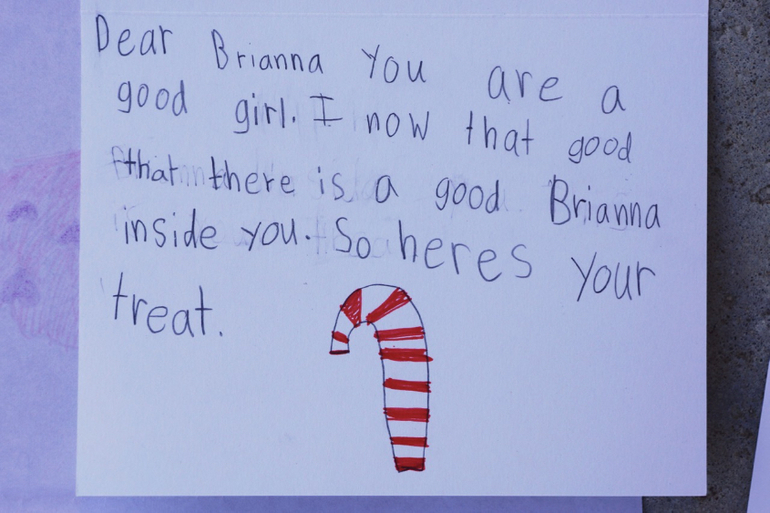 Dear Brianna You are a
good girl. I now that good
that there is a good Brianna
inside you. So heres your
treat.